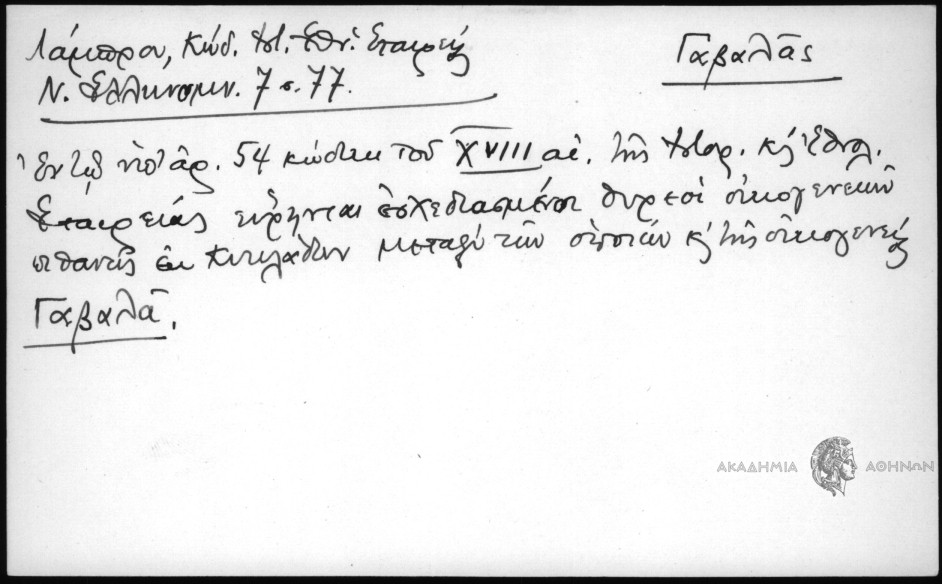 Λάμπρου, Κώδ. Ιστ. Εθν. Εταιρείας
Γαβαλᾶς
Ν. Ελληνομν. 7 σ. 77.
Ἐν τῷ ὑπ' ἀρ. 54 κώδικι τοῦ XVIII αἰ. τῆς Ἱστορ. κ' Ἐθνολ.
Ἑταιρείας εὕρηνται ἐσχεδιασμένοι θυρεοὶ οἰκογενειῶν
πιθανῶς ἐκ Κυκλάδων μεταξὺ τῶν ὁποίων κ' τῆς οἰκογενείας
Γαβαλᾶ.
ΑΚΑΔΗΜΙΑ ΑΘΗΝΩΝ